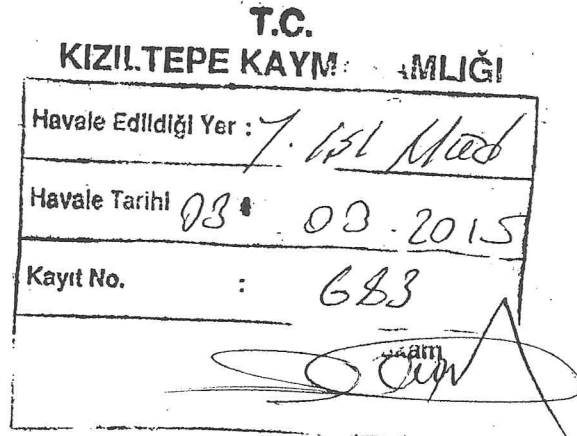 T.C.
KIZILTEPE KAYM AMLIĞI
Havale Edildiği Yer : Y. İşl Müd
Havale Tarihi 03 03.2015
Kayıt No. : 683